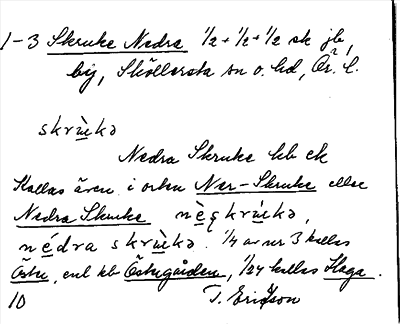 1-3 Skruke Nedra 1/2 + 1/2 + 1/2 sk jb,
by, Sköllersta sn o. hd, Ör. l.
skrùkə
Nedra Skruke hb ek
Kallas även i orten Ner-Skruke eller
Nedra Skruke nèɽkrùkə,
nédra skrùkə. 1/4 av nr 3 kallas
Östra, enl kb Östragården, 1/24 kallas Haga.
10 T. Ericsson